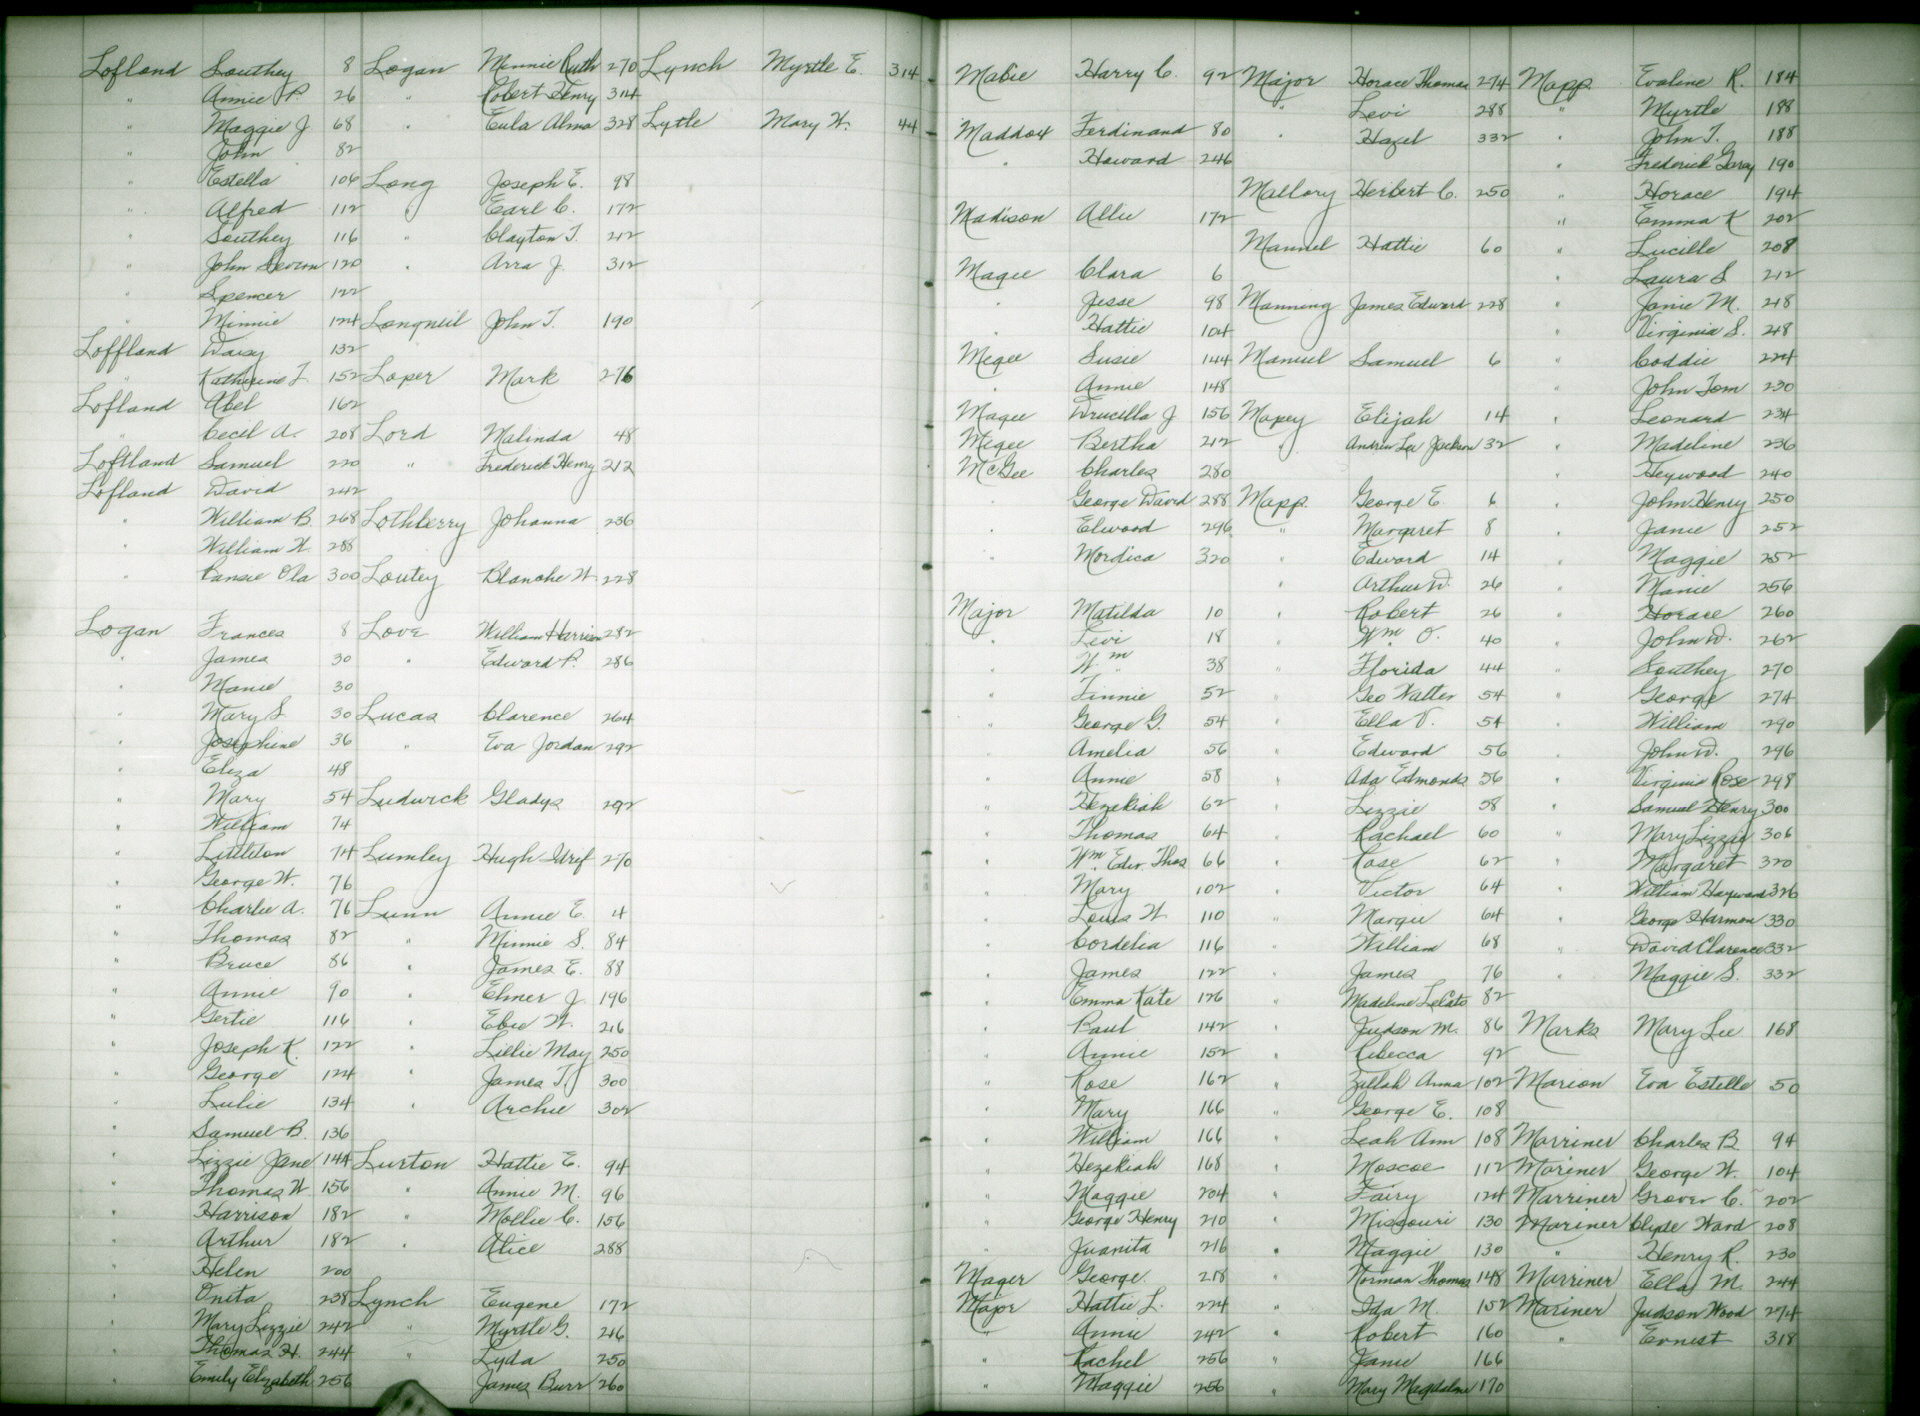 Lofland Southey 8
" Annie P. 26
" Maggie J 68
" John 82
" Estella 104
" Alfred 112
" Southey 116
" John Severn 120
" Spencer 122
" Minnie 124
Loffland Daisy 132
" Katherine F. 152
Lofland Abel 162
" Cecil A. 208
Loftland Samuel 220
Lofland David 242
" William B. 268
" William W. 288
" Pansie Ola 300
Logan Frances 8
" James 30
" Mamie 30
" Mary S 30
" Josephine 36
" Eliza 48
" Mary 54
" William 74
" Littleton 74
" George W. 76
" Charlie A. 76
" Thomas 82
" Bruce 86
" Annie 90
" Gertie 116
" Joseph K. 122
" George 124
" Lulie 134
" Samuel B. 136
" Lizzie Jane 144
" Thomas W 156
" Harrison 182
" Arthur 182
" Helen 200
" Oneta 238
" Mary Lizzie 242
" Thomas H. 244
" Emily Elizabeth 256
Logan Minnie Ruth 270
" Robert Henry 314
" Eula Alma 328
Long Joseph E. 98
" Earl C. 172
" Clayton T. 212
" Arra J. 312
Longneil John T. 190
Loper Mark 276
Lord Malinda 48
" Frederick Henry 212
Lothberry Johanna 236
Loutey Blanche W. 228
Love William Harrison 282
" Edward P. 286
Lucas Clarence 264
" Eva Jordan 292
Ludwick Gladys 292
Lumley Hugh 270
Lunn Annie E. 4
" Minnie S. 84
" James E. 88
" Elmer J. 196
" Ebie W. 216
" Lillie May 250
" James T. 300
" Archie 302
Lurton Hattie E. 94
" Annie M. 96
" Mollie C. 156
" Alice 288
Lynch Eugene 172
" Myrtle G. 246
" Lyda 250
" James Burr 260
Lynch Myrtle E. 314
Lytle Mary W. 44
Mabie Harry C. 92
Maddox Ferdinand 80
" Howard 246
Madison Allie 172
Magee Clara 6
" Jesse 98
" Hattie 104
Megee Susie 144
" Annie 148
Magee Drucilla J 156
Megee Bertha 212
McGee Charles 280
" George David 288
" Elwood 296
" Mordica 320
Major Matilda 10
" Levi 18
" Wm 38
" Finnie 52
" George G. 54
" Amelia 56
" Annie 58
" Hezekiah 62
" Thomas 64
" Wm Edw. Thos 66
" Mary 102
" Louis W. 110
" Cordelia 116
" James 122
" Emma Kate 126
" Paul 142
" Annie 152
" Rose 162
" Mary 166
" William 166
" Hezekiah 168
" Maggie 204
" George Henry 210
" Juanita 216
Mager George 218
Major Hattie L. 224
" Annie 242
" Rachel 256
" Maggie 256
Major Horace Thomas 274
" Levi 288
" Hazel 332
Mallory Herbert C. 250
Mannel Hattie 60
Manning James Edward 228
Manuel Samuel 6
Mapey Elijah 14
" Andrew Lee Jackson 32
Mapp George E. 6
" Margaret 8
" Edward 14
" Arthur W. 26
" Robert 26
" Wm O. 40
" Florida 44
" Geo Walter 54
" Ella V. 54
" Edward 56
" Ada Edmonds 56
" Lizzie 58
" Rachael 60
" Rose 62
" Victor 64
" Margie 64
" William 68
" James 76
" Madeline LeCato 82
" Judson M. 86
" Rebecca 92
" Zillah Anna 102
" George E. 108
" Leah Ann 108
" Moscoe 112
" Fairy 124
" Missouri 130
" Maggie 130
" Norman Thomas 148
" Ida M. 152
" Robert 160
" Janie 166
" Mary Magdaline 170
Mapp Evaline R. 184
" Myrtle 188
" John T. 188
" Frederick 190
" Horace 194
" Emma K 202
" Lucille 208
" Laura S 212
" Janie M. 218
" Virginia S. 218
" Coddie 224
" John Tom 230
" Leonard 234
" Madeline 236
" Heywood 240
" John Henry 250
" Janie 252
" Maggie 252
" Manie 256
" Horace 260
" John W. 262
" Southey 270
" George 274
" William 290
" John W. 296
" Virginia Rose 298
" Samuel Henry 300
" Mary Lizzie 306
" Margaret 320
" William Haywood 326
" George Harmon 330
" David Clarence 332
" Maggie S. 332
Marks Mary Lee 168
Marion Eva Estelle 50
Marriner Charles B 94
Mariner George W. 104
Marriner Grover C. 202
Mariner Clyde Ward 208
" Henry R. 230
Marriner Ella M. 244
Mariner Judson Wood 274
" Earnest 318